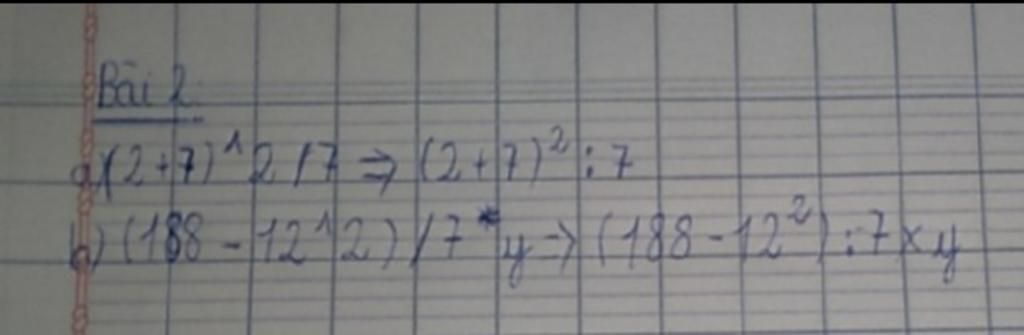 Bài 2:
a) (2+7)^2/7 => (2+7)² : 7
b) (188 - 12^2)/7*y => (188 - 12²) : 7 x y